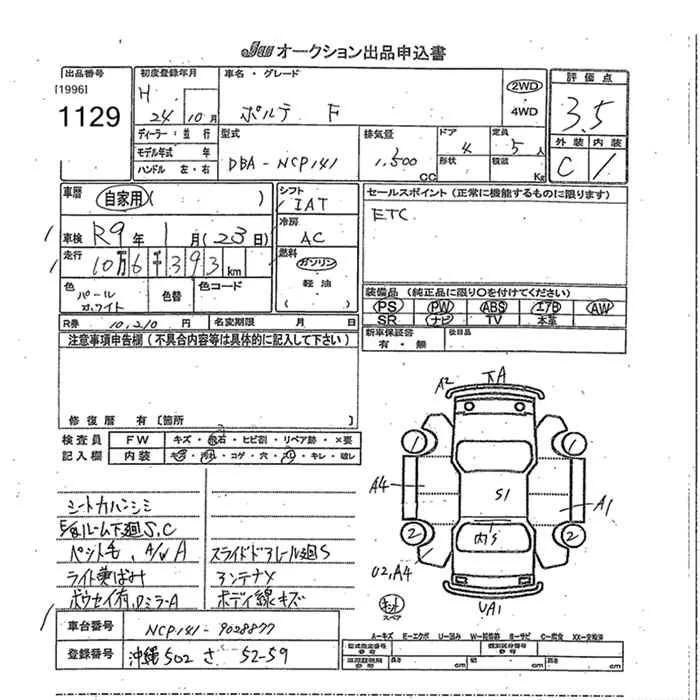 JU オークション出品申込書
出品番号
[1996]
1129
初度登録年月
H
24 10月
ディーラー・並行
モデル年式 年
ハンドル 左・右
車名・グレード
ポルテ F
2WD
4WD
型式
DBA-NCP141
排気量
1,500
CC
ドア
4
形状
定員
5人
積載
Kg
評価点
3.5
外装 内装
C 1
車歴 自家用( )
車検 R9年 1月(23日)
走行 10万6千393km
色
パール
ホワイト
色替
色コード
シフト
IAT
冷房
AC
燃料
ガソリン
軽油
( )
セールスポイント(正常に機能するものに限ります)
ETC
装備品(純正品に限り○を付けてください)
PS PW ABS エアB AW
SR ナビ TV 本革
新車保証書
有・無
後日品
R券 10,210 円 名変期限 月 日
注意事項申告欄(不具合内容等は具体的に記入して下さい)
修復歴 有〔箇所 〕
検査員 FW キズ・飛石・ヒビ割・リペア跡・×要
記入欄 内装 キズ・汚れ・コゲ・穴・スレ・キレ・破レ
シートカバーシミ
下廻S.C
ペット毛、A/W A
ライト黄ばみ
ボウセイ有、Dミラ-A
スライドドアレール廻S
アンテナX
ボディ線キズ
A2
A
1
1
A4
S1
A1
2
内S
2
U2,A4
UA1
キット
スペア
車台番号 NCP141-9028877
登録番号 沖縄502 さ 52-59
A-キズ E-エクボ U-凹み W-補修跡 S-サビ C-腐食 XX-交換済
型式指定番号
参考
類別区分番号
参考
車両諸元
参考
長さ cm
幅 cm
高さ cm